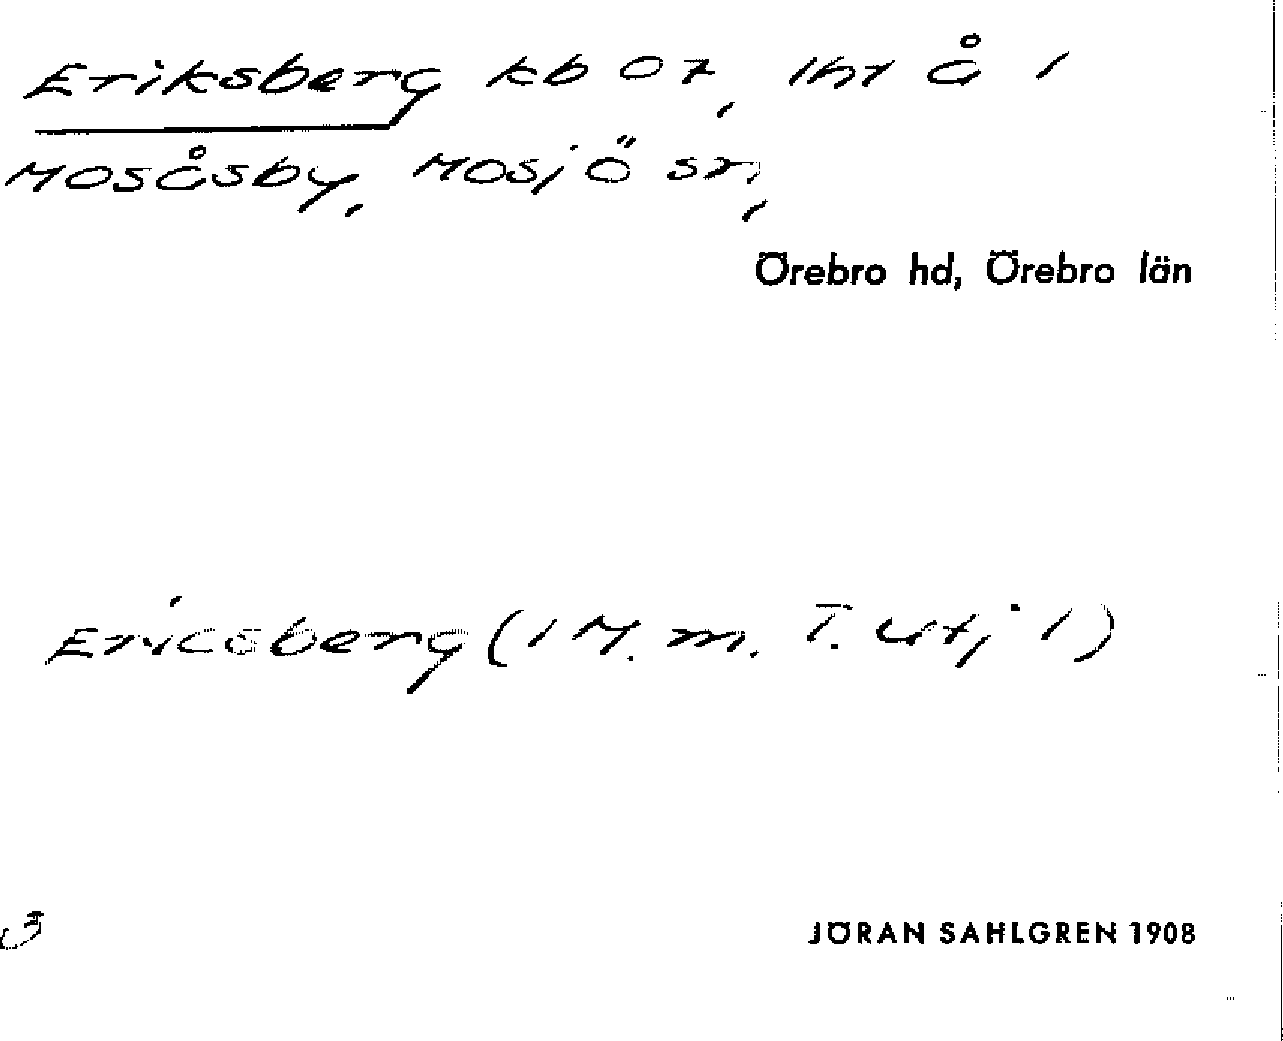 Eriksberg kb 07, 1hr å 1
Mosåsby, Mosjö sn,
Örebro hd, Örebro län
Ericsberg (1 M. m. T. utj 1)
3
JÖRAN SAHLGREN 1908